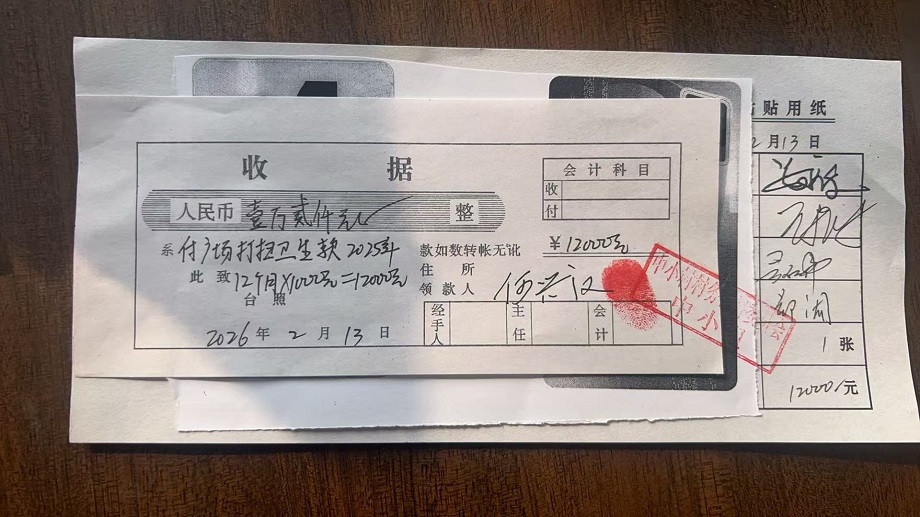 贴用纸
2月13日
收据
会计科目
收
付
人民币 壹万贰仟元 整
系 付广场打扫卫生款 2025年 款如数转帐无讹 ¥12000元
此致 12个月×1000元=12000元 住所
台照 领款人 何
经手人 主任 会计
2026年2月13日
中小
1张
12000/元